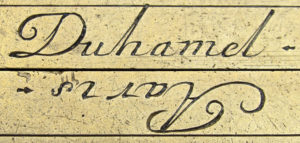 Duhamel -
Paris